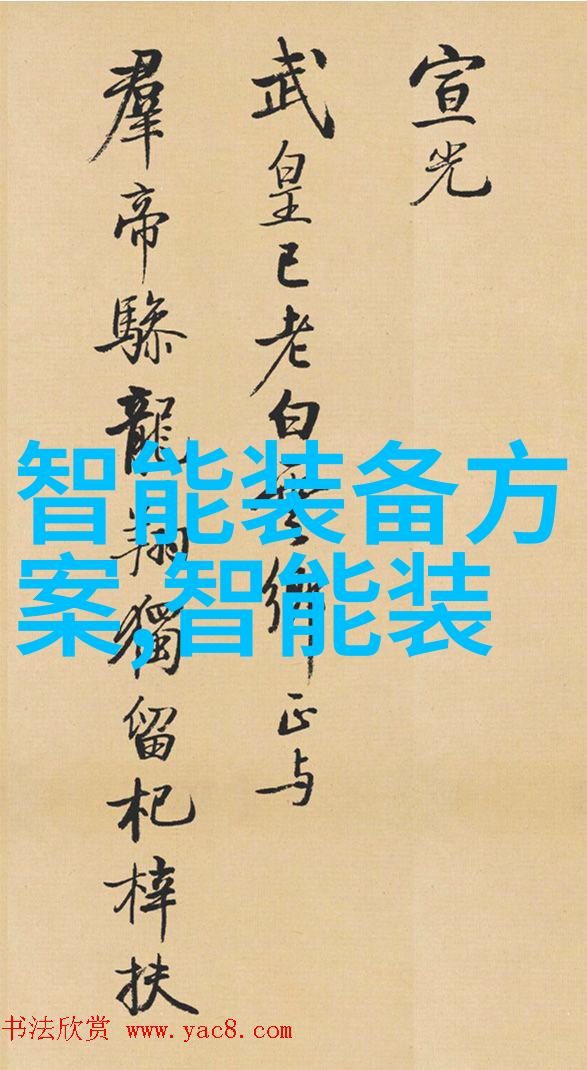 宣光
武皇已老白雲鄉正与
羣帝驂龍翔獨留杞梓扶
智能装备方
案,智能装
书法欣赏 www.yac8.com